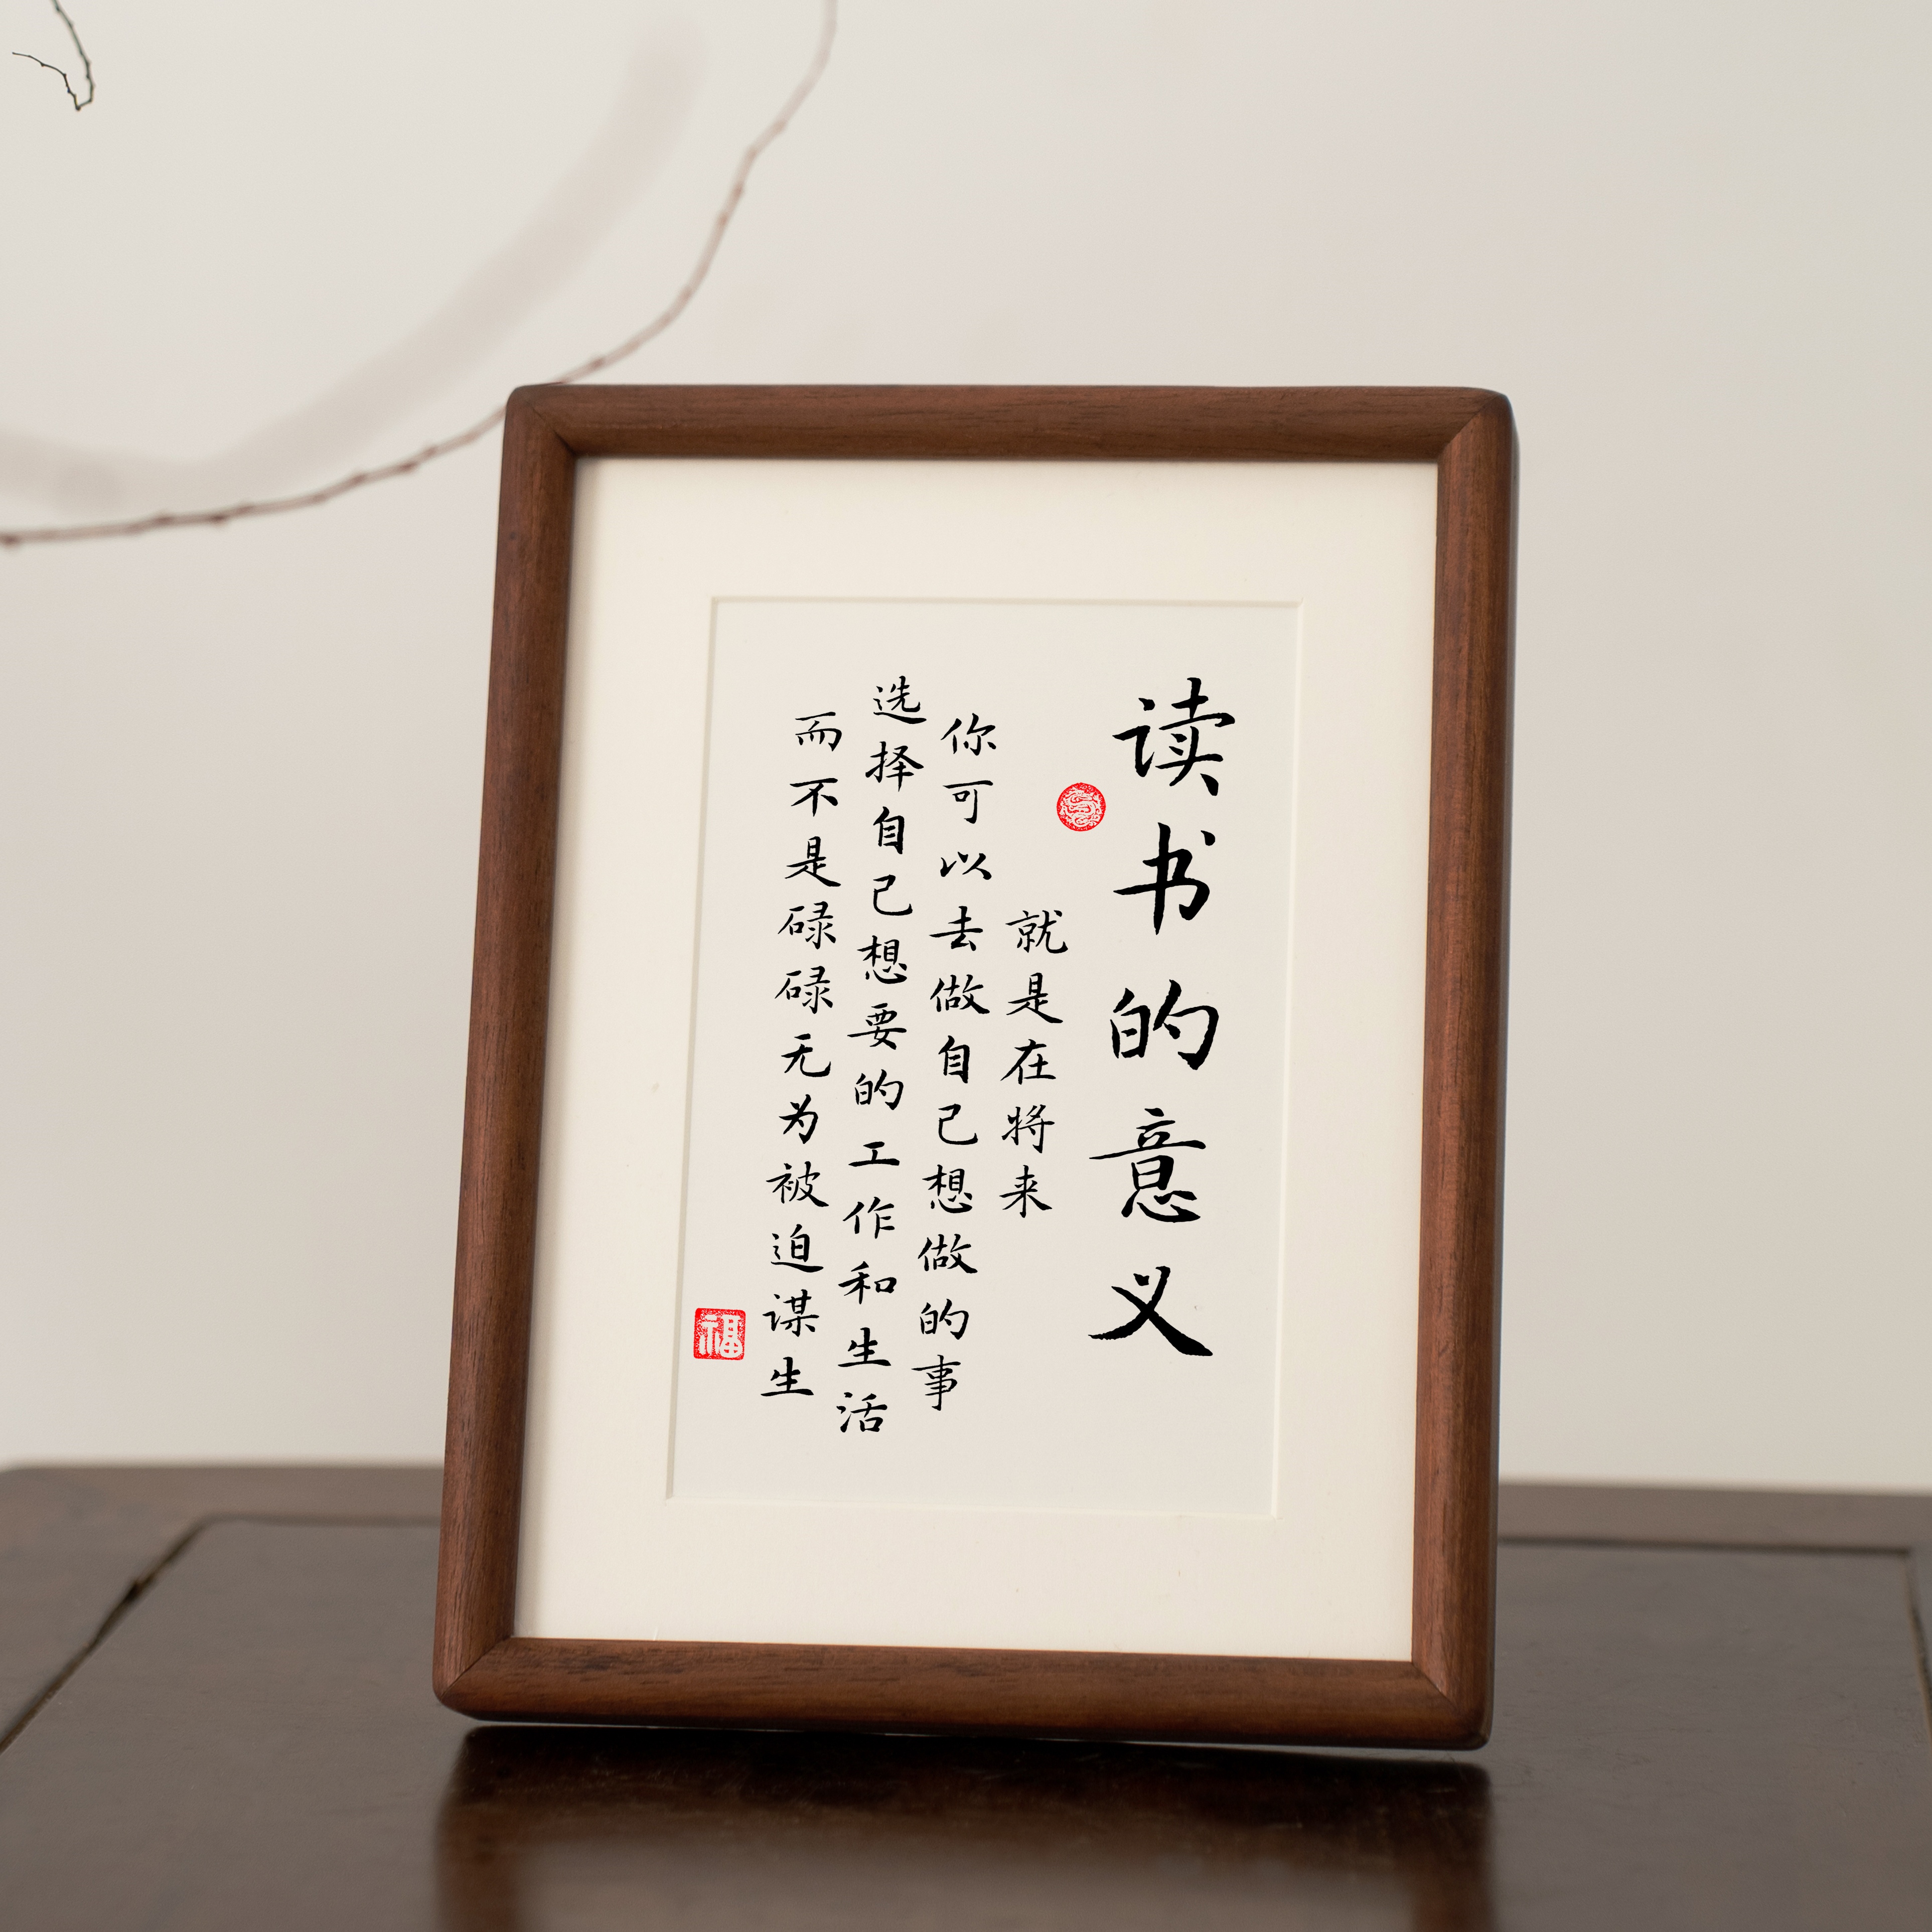 读书的意义
就是在将来
你可以去做自己想做的事
选择自己想要的工作和生活
而不是碌碌无为被迫谋生
福